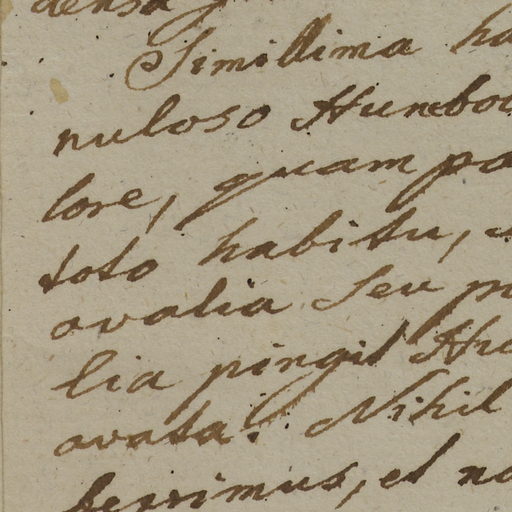 densa
Simillima ha
nuloso Humbo
lore, quam pa
toto habitu,
ovalia seu m
lia pingit Hu
ovata. Nihil
berrimus, et na